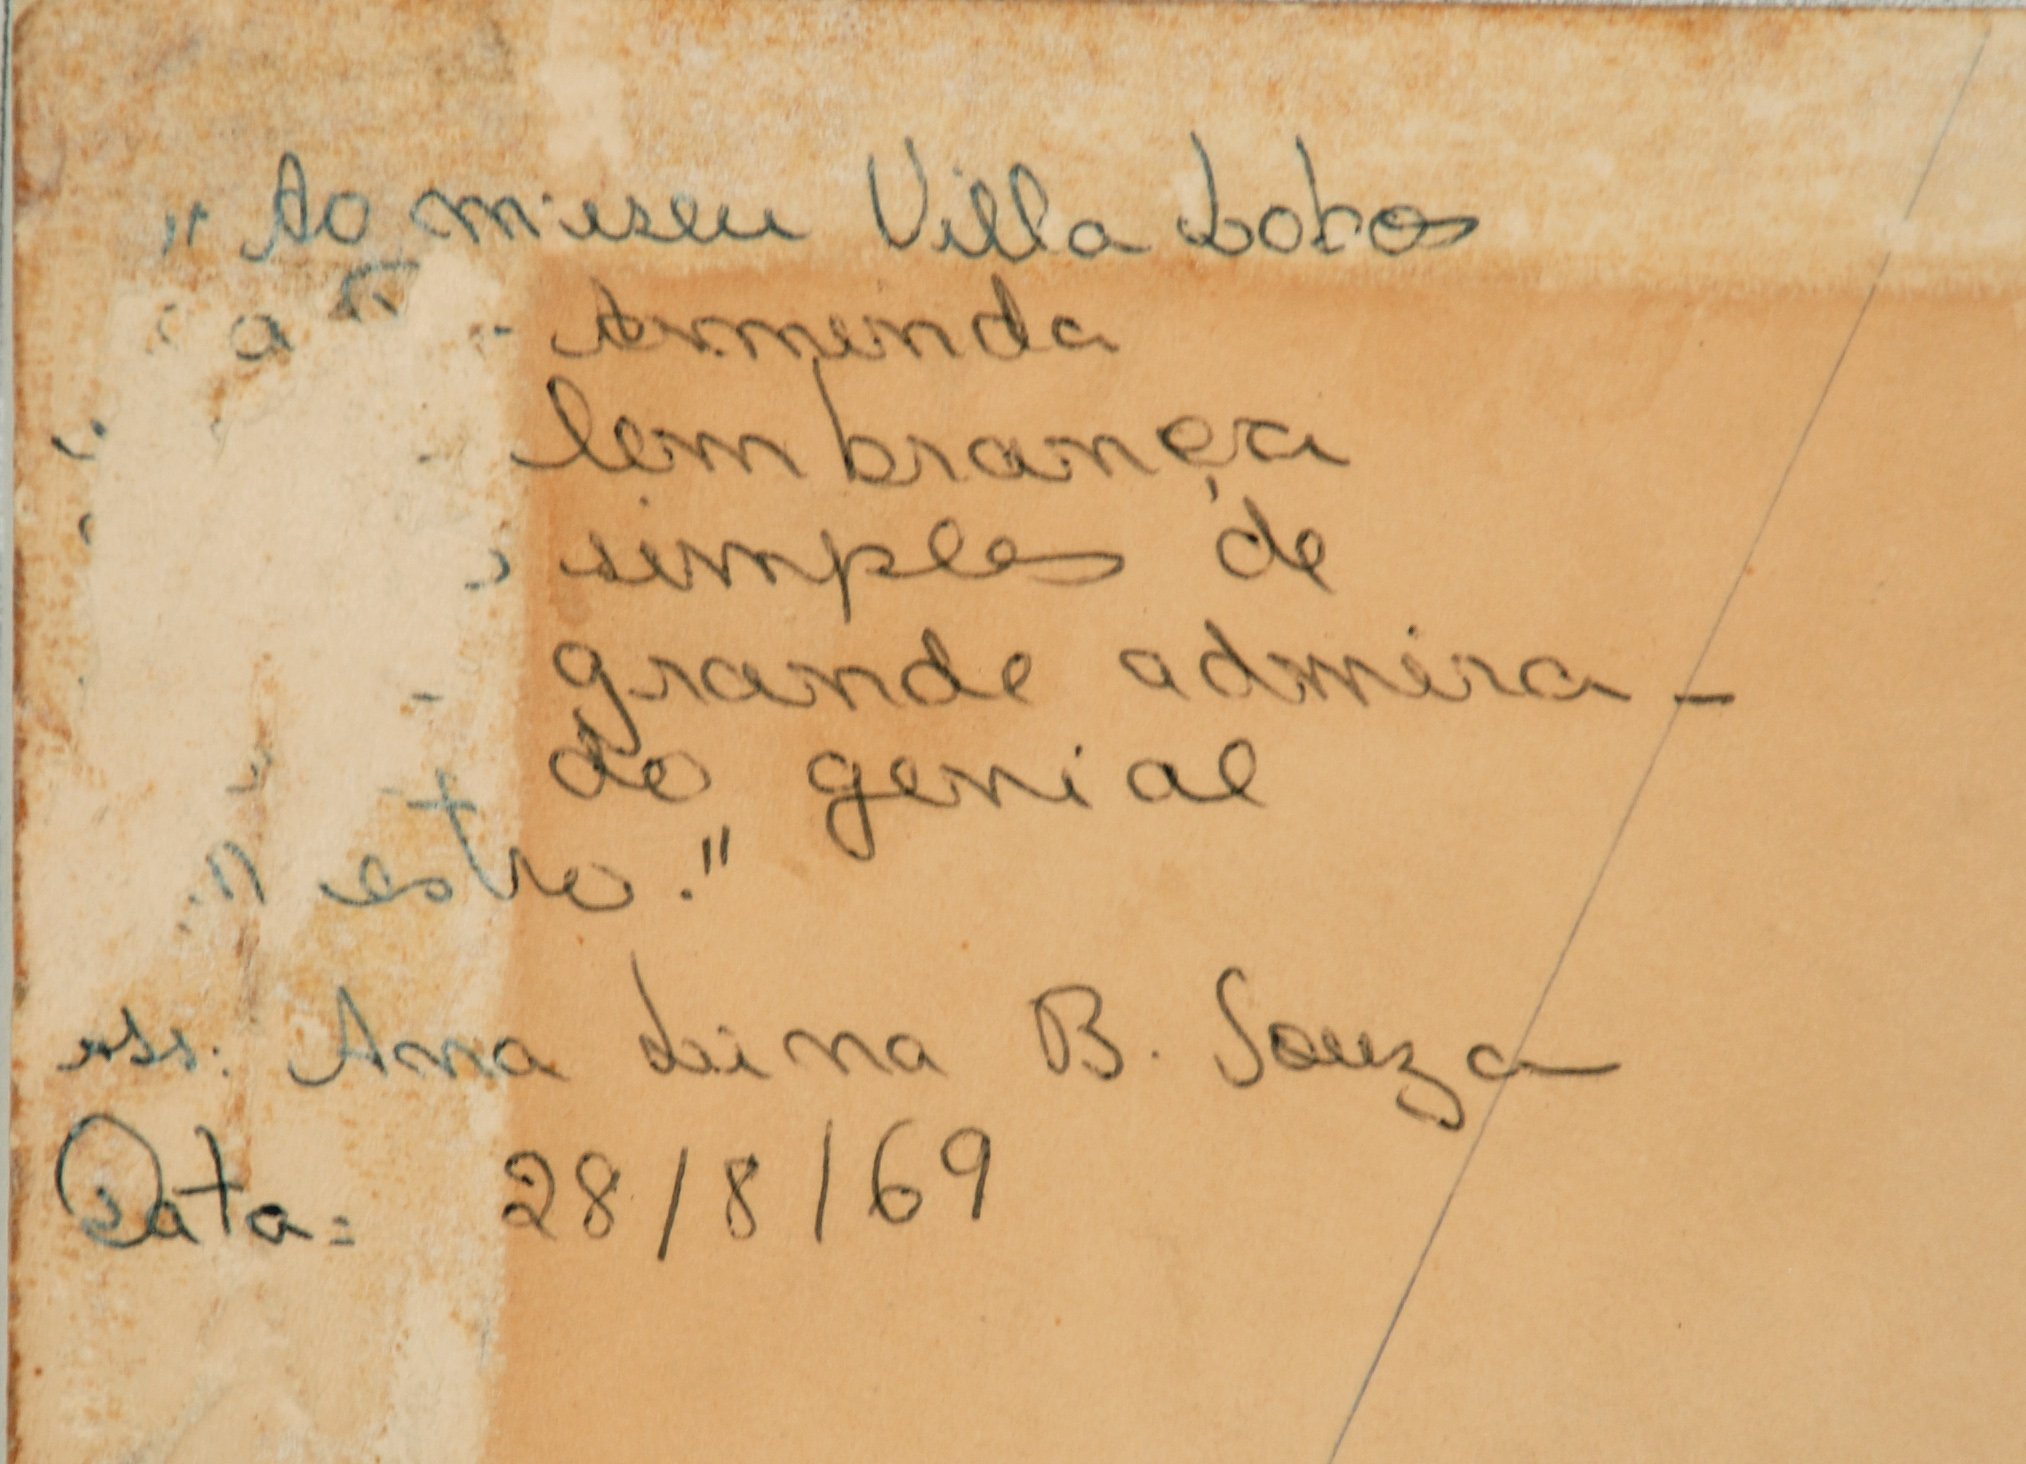 "Ao museu Villa Lobos
a Arminda
lembrança
simples de
grande admira-
do genial
estro."
ass: Ana Lina B. Souza
Data: 28/8/69